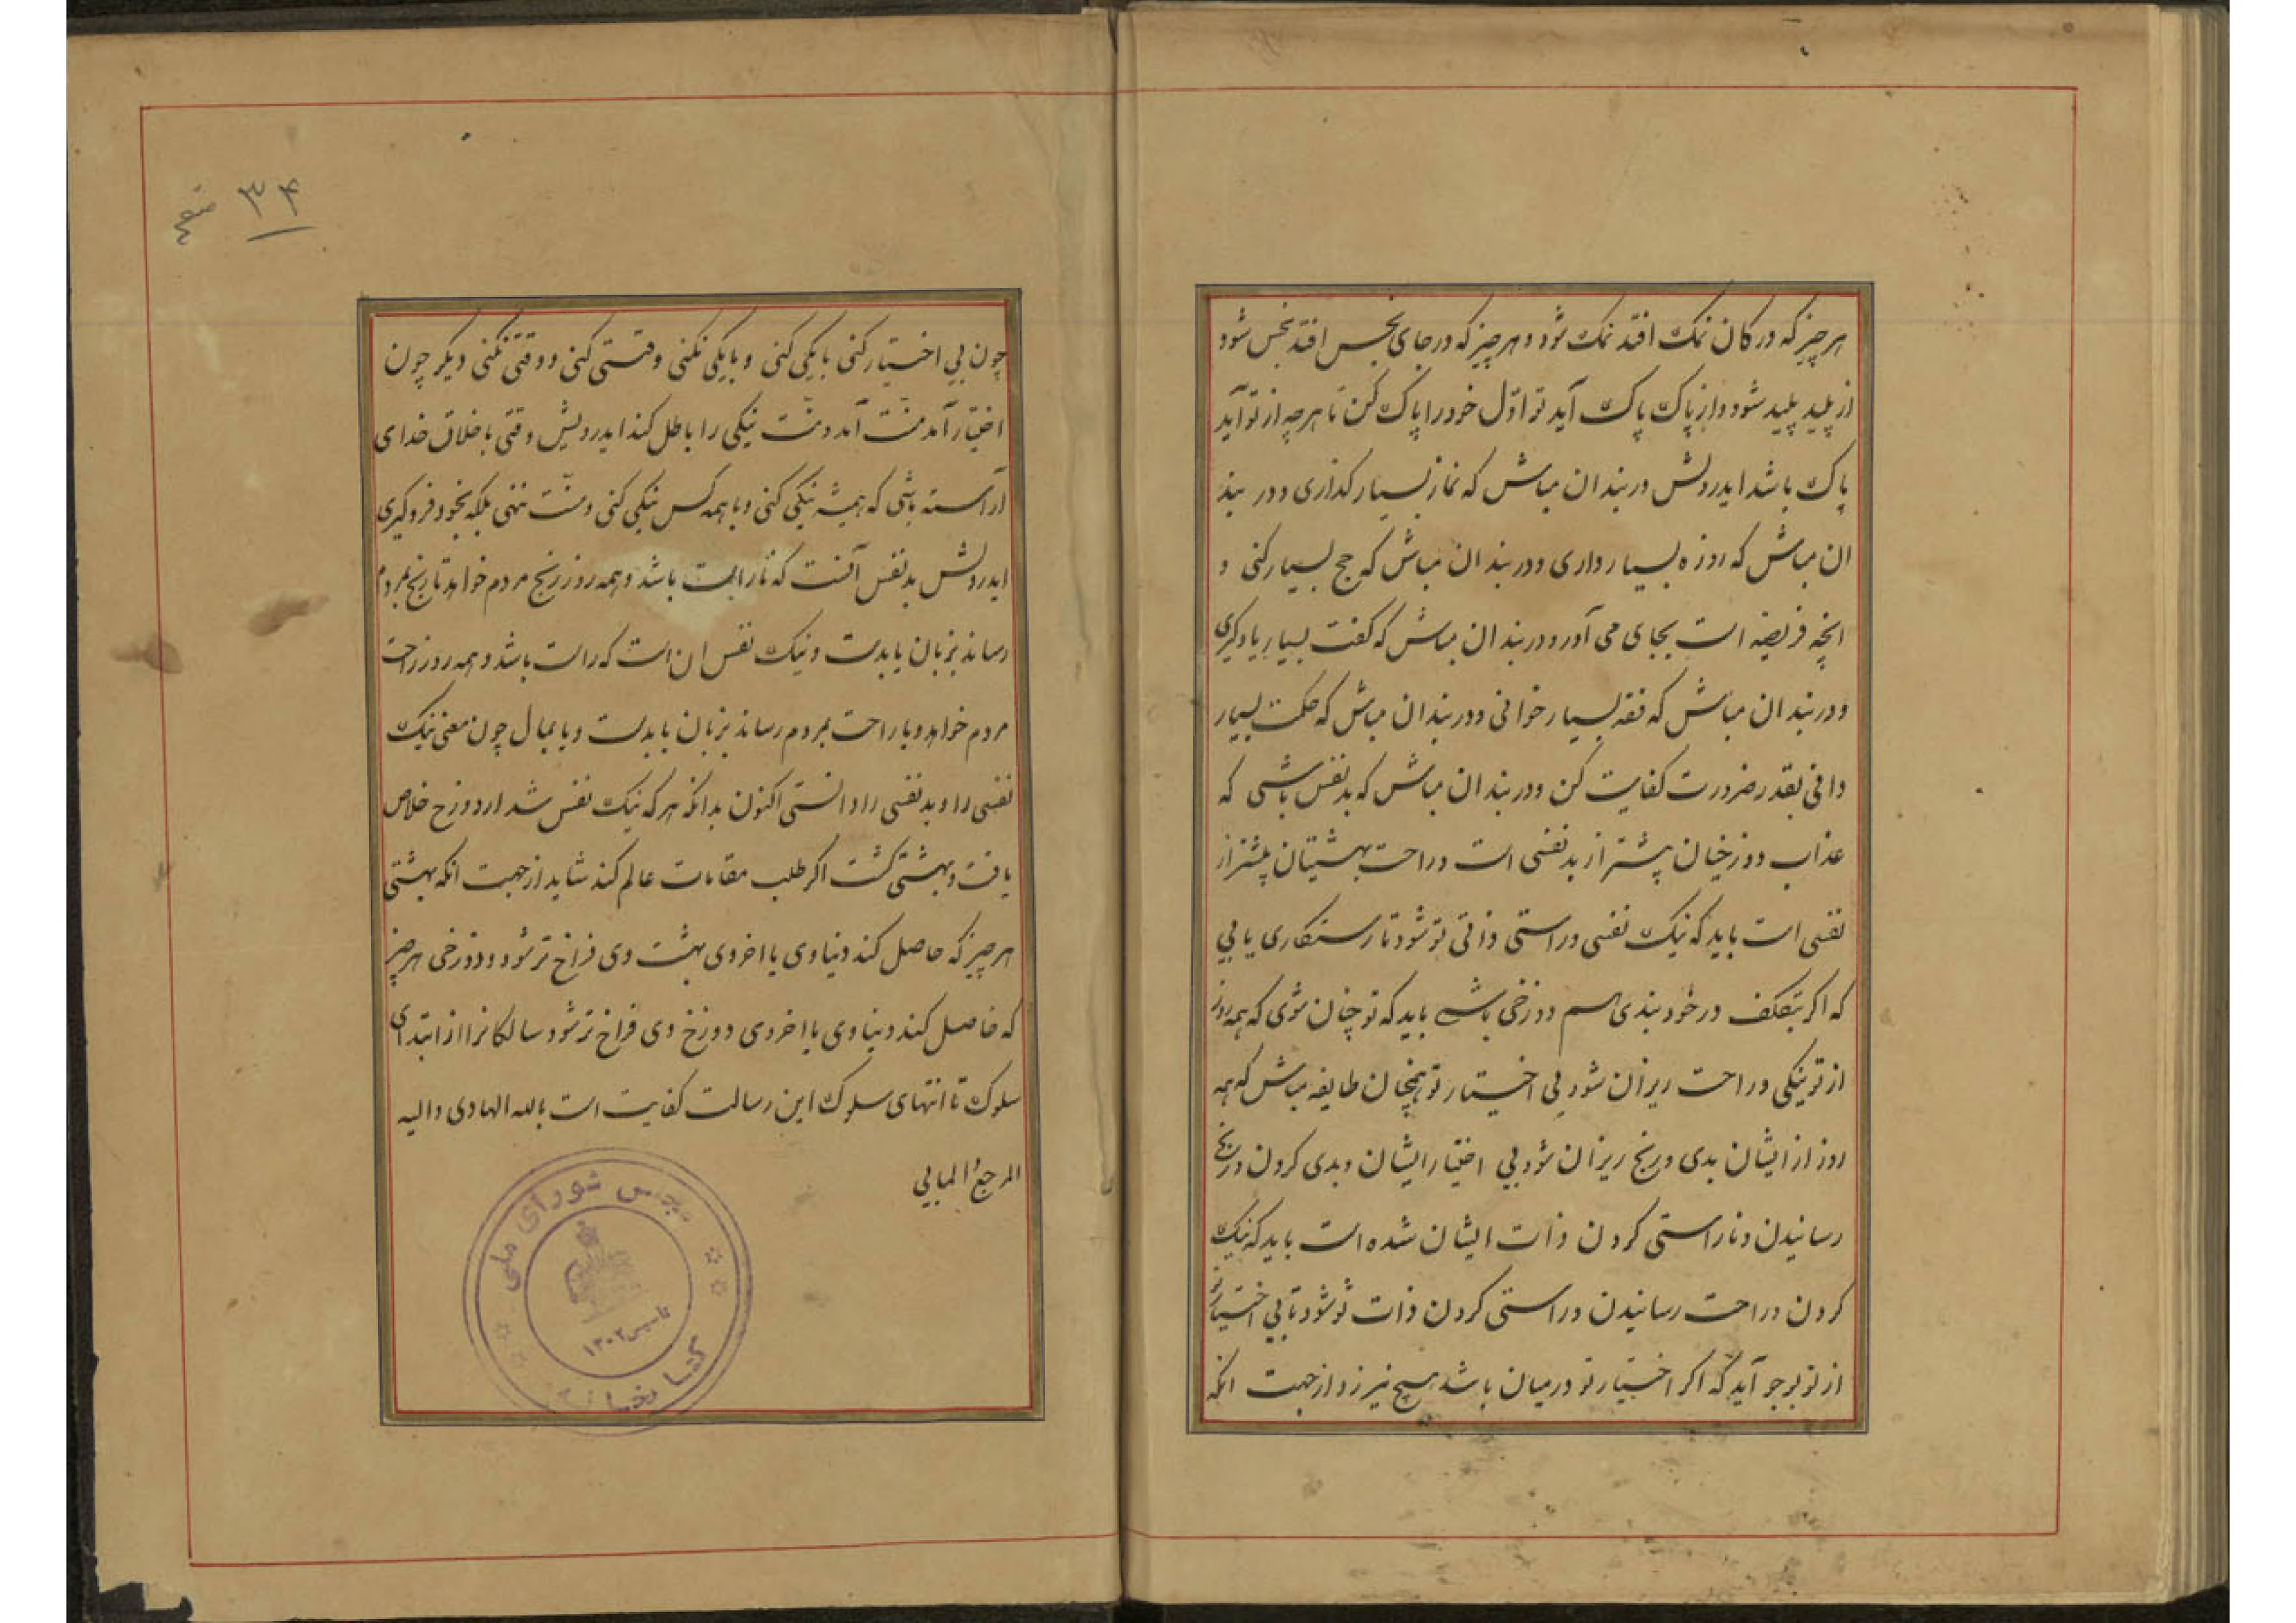 هر چیز که در کان نمک افتد نمک شود و هر چیز که در جای نجس افتد نجس شود
از پلید پلید شود و از پاک پاک آید تو اوّل خود را پاک کن تا هر چه از تو آید
پاک باشد ایدرویش در بند ان مباش که نماز بسیار کذاری و در بند
ان مباش که روزه بسیار داری و در بند ان مباش که حج بسیار کنی و
انچه فریضه است بجای می آور و در بند ان مباش که لغت بسیار یاد کیری
و در بند ان مباش که فقه بسیار خوانی و در بند ان مباش که حکمت بسیار
دانی بقدر ضرورت کفایت کن و در بند ان مباش که بد نفس باشی که
عذاب دوزخیان بیشتر از بد نفسی است و راحت بهشتیان بیشتر از
نفسی است باید که نیک نفسی و راستی ذاتی تو شود تا رستکاری یابی
که اکر بتکلف در خود بندی هم دوزخی باشی باید که تو چنان شوی که همه روز
از تو نیکی و راحت ریزان شود بی اختیار تو همچنان طایفه مباش که همه
روز از ایشان بدی و رنج ریزان شود بی اختیار ایشان و بدی کردن و رنج
رسانیدن و ناراستی کردن ذات ایشان شده است باید که نیک
کردن و راحت رسانیدن و راستی کردن ذات تو شود تا بی اختیار تو
از تو بوجود آید که اکر اختیار تو در میان باشد هیچ نیرزد از جهت انکه
۳۴ صفحه
چون بی اختیار کنی با یکی کنی و با یکی نکنی وقتی کنی و وقتی نکنی دیکر چون
اختیار آمد منّت آمد و منّت نیکی را باطل کند ایدرویش وقتی باخلاق خدای
آراسته باشی که همیشه نیکی کنی و با همه کس نیکی کنی و منّت ننهی بلکه بخود فروکیری
ایدرویش بد نفس آنست که ناراست باشد و همه روز رنج مردم خواهد تا رنج بمردم
رساند بزبان یا بدست و نیک نفس ان است که راست باشد و همه روز راحت
مردم خواهد و یا راحت بمردم رساند بزبان یا بدست و یا بمال چون معنی نیک
نفسی را و بد نفسی را دانستی اکنون بدانکه هر که نیک نفس شد از دوزخ خلاص
یافت و بهشتی کشت اکر طلب مقامات عالم کند شاید از جهت انکه بهشتی
هر چیز که حاصل کند دنیاوی یا اخروی بهشت وی فراخ تر شود و دوزخی هر چیز
که حاصل کند دنیاوی یا اخروی دوزخ وی فراخ تر شود سالکانرا از ابتدای
سلوک تا انتهای سلوک این رسالت کفایت است بالله الهادی و الیه
المرجع المابی
مجلس شورای ملی
تاسیس ۱۳۰۲
کتابخانه